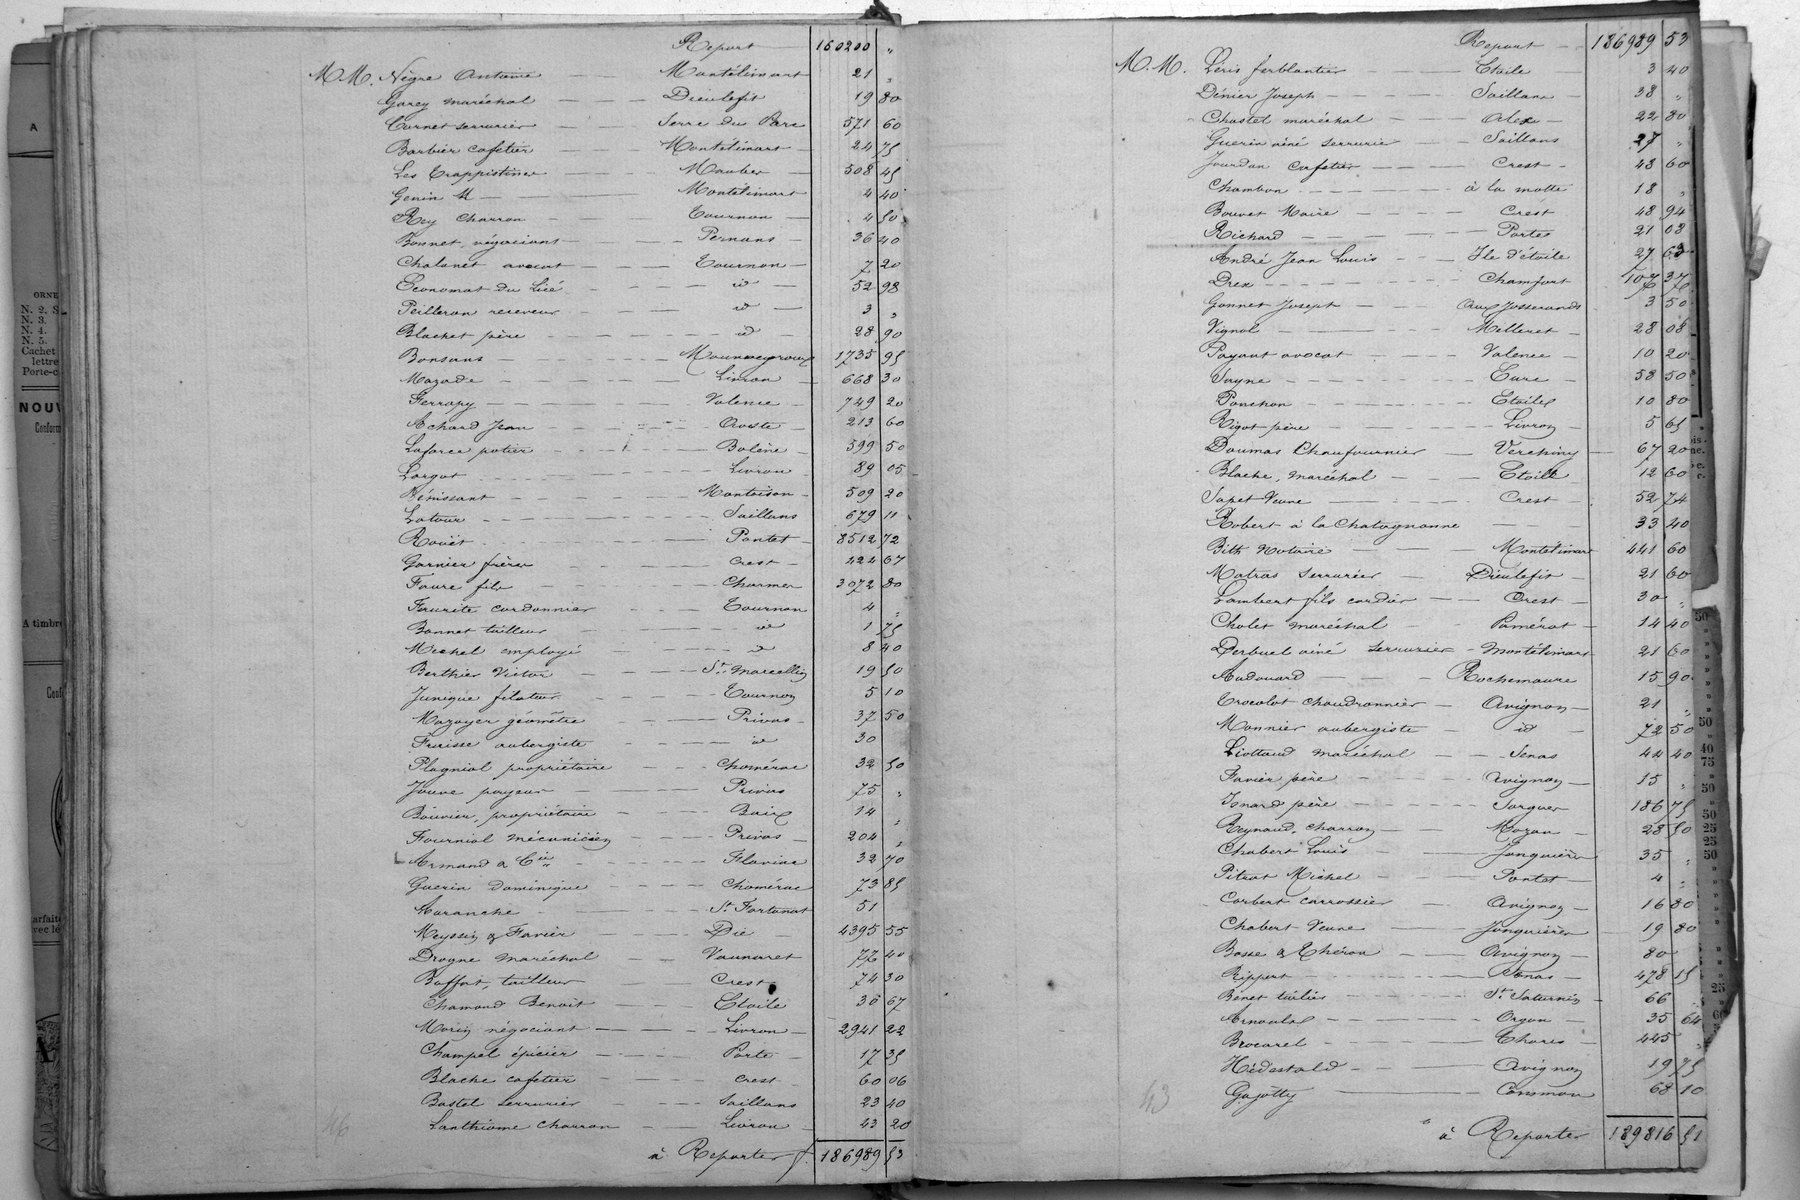 Report — 160200 "
M.M. Négre Antoine — Montélimart 21 "
Garey maréchal — Dieulefit 19 80
Cornet serrurier — Serre du Parc 571 60
Barbier cafetier — Montélimart 24 75
Les Trappistines — Maubec 508 45
Genin M — Montélimart 4 40
Rey charron — Tournon 4 50
Bonnet, négociant — 36 40
Chalanet avocat — Tournon 7 20
Economat du Licé — id 52 98
Peilleron receveur — id 3 "
Blachet père — id 28 90
Bonsans — 1735 95
Mazade — Livron 668 30
Ferrapy — Valence 749 20
Achard Jean — Aoste 213 60
Laforce potier — Bolène 599 50
Largot — Livron 89 05
Hénissant — Montoison 509 20
Latour — Saillans 679 11
Rouët — Pontet 8512 72
Garnier frères — Crest 424 67
Faure fils — Charmes 3072 80
Faurite cordonnier — Tournon 4 "
Bonnet tailleur — id 1 75
Michel employé — id 8 40
Berthier Victor — St. Marcellin 19 50
Junique filateur — Tournon 5 10
Mazoyer géomètre — Privas 37 50
Fraisse aubergiste — id 30
Plagniol propriétaire — Chomérac 32 50
Jouve payeur — Privas 75 "
Bouvier, propriétaire — Baix 14 "
Fournial mécanicien — Privas 204 "
Armand & Cie — Flaviac 32 70
Guerin Dominique — Chomérac 73 85
Avranche — St. Fortunat 51
Meyssin & Favier — Die 4395 55
Drogne maréchal — Vaunavet 77 40
Boffort, tailleur — Crest 74 30
Chamond Benoit — Etoile 36 67
Morin négociant — Livron 2941 22
Champel épicier — Porte 17 35
Blache cafetier — Crest 60 06
Bastel serrurier — Saillans 23 40
Lanthiome charron — Livron 43 20
à Reporter f. 186989 53
46
Report — 186989 53
M.M. Léris ferblantier — Etoile 3 40
Dénier Joseph — Saillans 38 "
Chastel maréchal — Alex 22 80
Guerin ainé serrurier — Saillans 27 "
Jourdan cafetier — Crest 43 60
Chambon — à la motte 18 "
Bouvet Maire — Crest 48 94
Richard — Portes 21 03
André Jean Louis — Ile d'étoile 27 63
Drex — Chamfort
Gonnet Joseph — Josserands 3 50
Vignal — Melleret 28 08
Payant avocat — Valence 10 20
Sayne — Eure 58 50
Ponchon — Etoile 10 80
Rigot père — Livron 5 65
Doumas Chaufournier — Vercheny 67 20
Blache, maréchal — Etoile 12 60
Sapet Veuve — Crest 52 74
Robert à la Chatagnonne — 33 40
Bith Notaire — Montélimar 441 60
Matras serrurier — Dieulefit 21 60
Lambert fils cordier — Crest 30 "
Cholet maréchal — Pomérat 14 40
Derbuel ainé serrurier — Montélimart 21 60
Audouard — Rochemaure 15 90
Crocolot chaudronnier — Avignon 21 "
Monnier aubergiste — id 72 50
Liottaud maréchal — Sénas 44 40
Favier père — Avignon 15 "
Isnard père — Sorgues 186 75
Reynaud, charron — Mazan 28 50
Chabert Louis — Jonquières 35 "
Pitrat Michel — Pontet 4 "
Corbert carrossier — Avignon 16 80
Chabert Veuve — Jonquières 19 80
Bosse & Théron — Avignon 80
Rippert — Sénas 478 15
Benet tuilier — St. Saturnin 66
Arnould — Orgon 35 64
Brocarel — Thoris 445 "
Hédestald — Avignon 19 75
Gajotty — 68 10
à Reporter 189816 51
43
A
ORNE
N. 2. S
N. 3.
N. 4.
N. 5.
Cachet
lettre
Porte-c
NOUV
Conform
A timbre
Conf
arfaite
vec lé
50
50
40
75
50
50
25
25
50
25